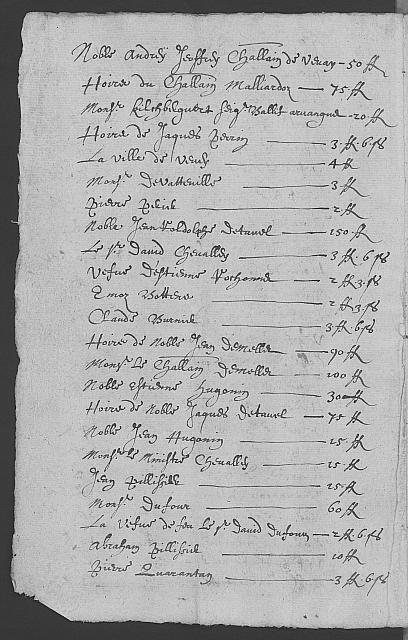 Noble André Jeoffrey Challain de Veray - 50 ff
Hoire du Challain Malliardoz — 75 ff
Monsr. Ballif - 20 ff
Hoire de Jaques Perrin — 3 ff. 6 ss
La ville de Vevey — 4 ff
Monsr. De Vatteville — 3 ff
Pierre — 2 ff
Noble Jean Rodolphe Detavel — 150 ff
Le sr. David Chevalley — 3 ff. 6 ss
Vefue d'Estienne — 2 ff 3 ss
Bottere — 2 ff 3 ss
Claude Burnier — 3 ff. 6 ss
Hoire de Noble Jean Demellet — 90 ff
Monsr. Le Challain Demellet — 100 ff
Noble Estienne Hugonin — 30 ff
Hoire de Noble Jaques Detavel — 75 ff
Noble Jean Hugonin — 15 ff
Monsr. le Ministre Chevalley — 15 ff
Jean — 15 ff
Monsr. Dufour — 60 ff
La Vefue de feu Le sr. David Dufour — 2 ff. 6 ss
Abraham — 10 ff
Pierre Quarantan — 3 ff. 6 ss